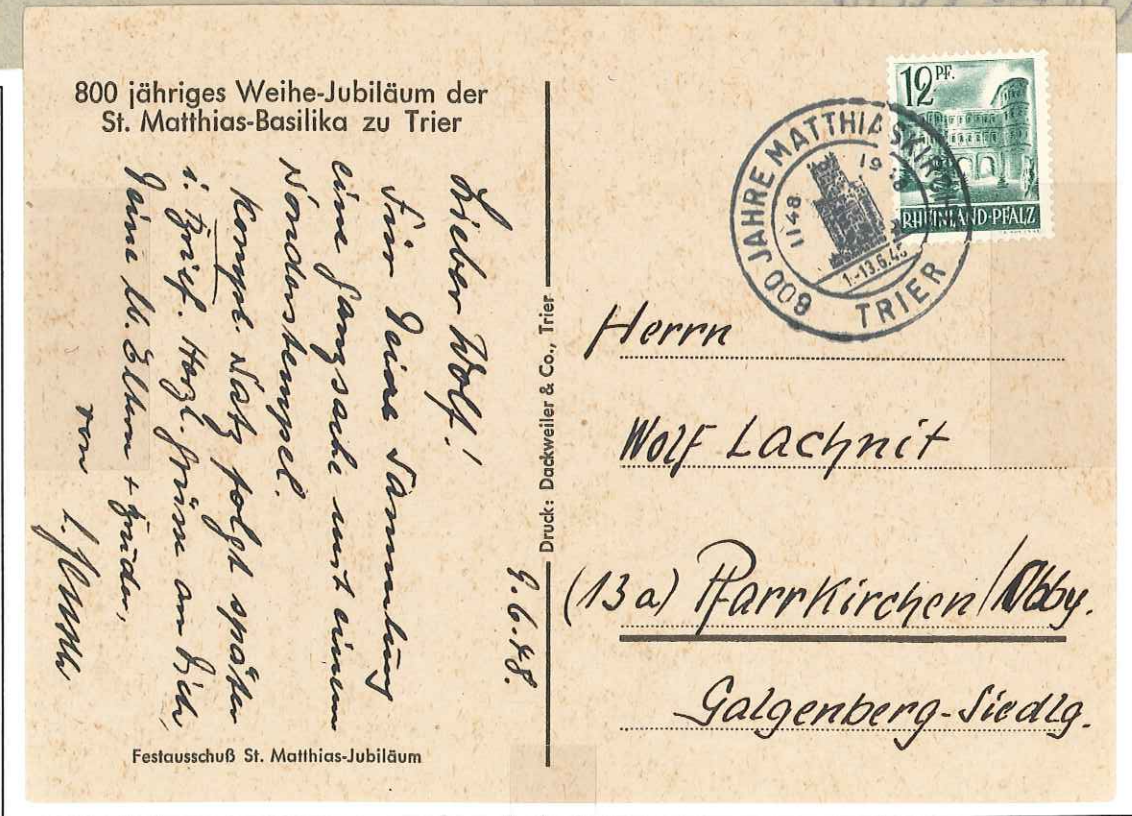 800 jähriges Weihe-Jubiläum der
St. Matthias-Basilika zu Trier
9.6.48.
Lieber Wolf!
Für Deine Sammlung
eine Ganzsache mit einem
Sonderstempel.
Kompl. Satz folgt später
i. Brief. Herzl. Grüsse an Dich,
Deine lb. Eltern + Bruder,
von
Festausschuß St. Matthias-Jubiläum
Druck: Dackweiler & Co., Trier
12 PF.
RHEINLAND-PFALZ
800 JAHRE MATTHIASKIRCHE
1148 1948
1.-13.6.48
TRIER
Herrn
Wolf Lachnit
(13a) Pfarrkirchen/Ndby.
Galgenberg-Siedlg.